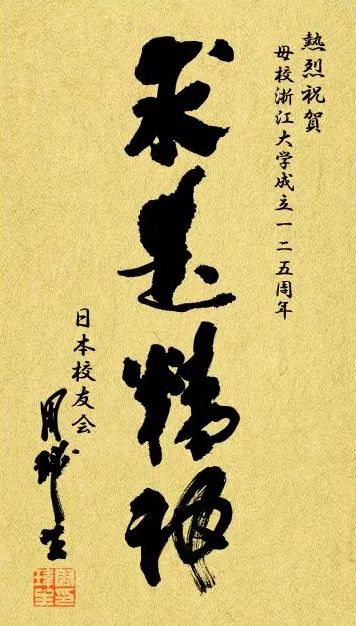 熱烈祝賀
母校浙江大学成立一二五周年
求是精神
日本校友会
周瑋生